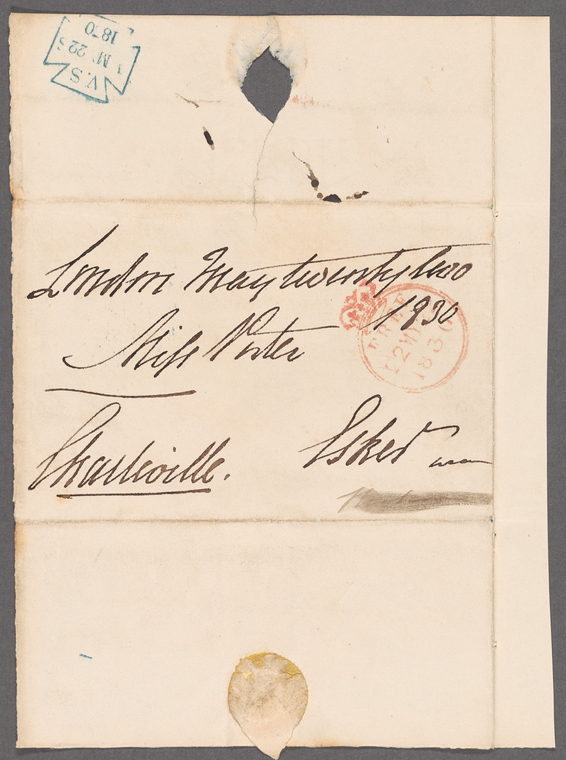 V.S
MY 22 S
1830
London May twenty two
1830
Miss Porter
FREE
22 MY
1830
Charleville.
Esher